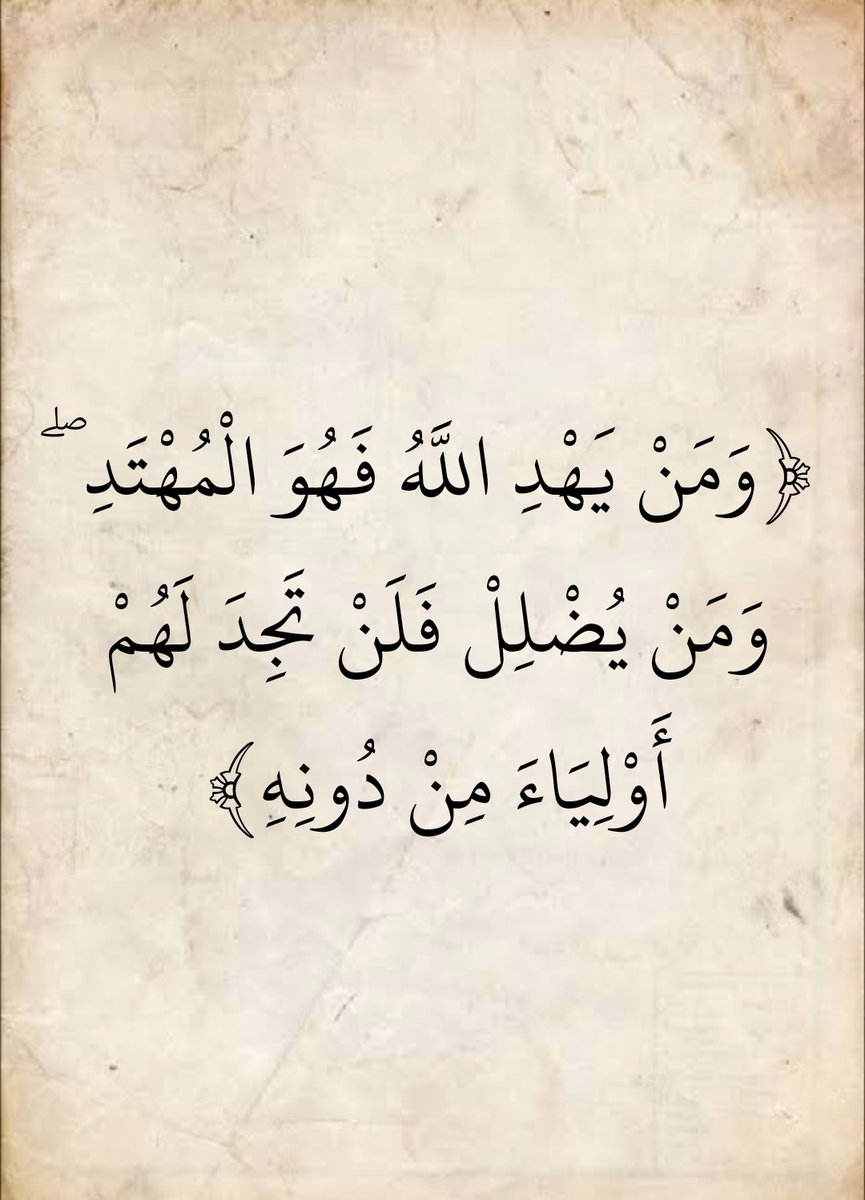 ﴿وَمَنْ يَهْدِ اللَّهُ فَهُوَ الْمُهْتَدِ ۖ
وَمَنْ يُضْلِلْ فَلَنْ تَجِدَ لَهُمْ
أَوْلِيَاءَ مِنْ دُونِهِ﴾